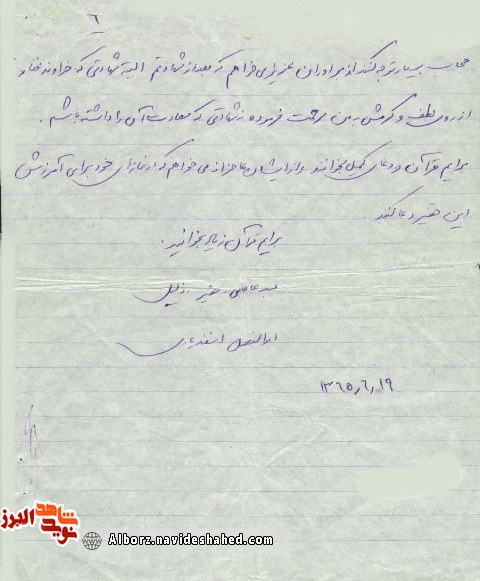 ٦
حجاب بسیار توجه کنند از برادران عزیزم می خواهم که بعد از شهادتم البته شهادتی که خداوند غفار
از روی لطف و کرمش به من مرحمت فرموده شهادتی که سعادت آن را داشته باشم.
برایم قرآن و دعای کمیل بخوانند و از ایشان عاجزانه می خواهم که در نمازهای خود برای آمرزش
این حقیر دعا کنند
برایم قرآن زیاد بخوانید.
عبد عاصی حقیر ذلیل
ابوالفضل اسفندیاری
۱۳۶۵٫۶٫۱۹
نوید شاهد البرز
Alborz.navideshahed.com